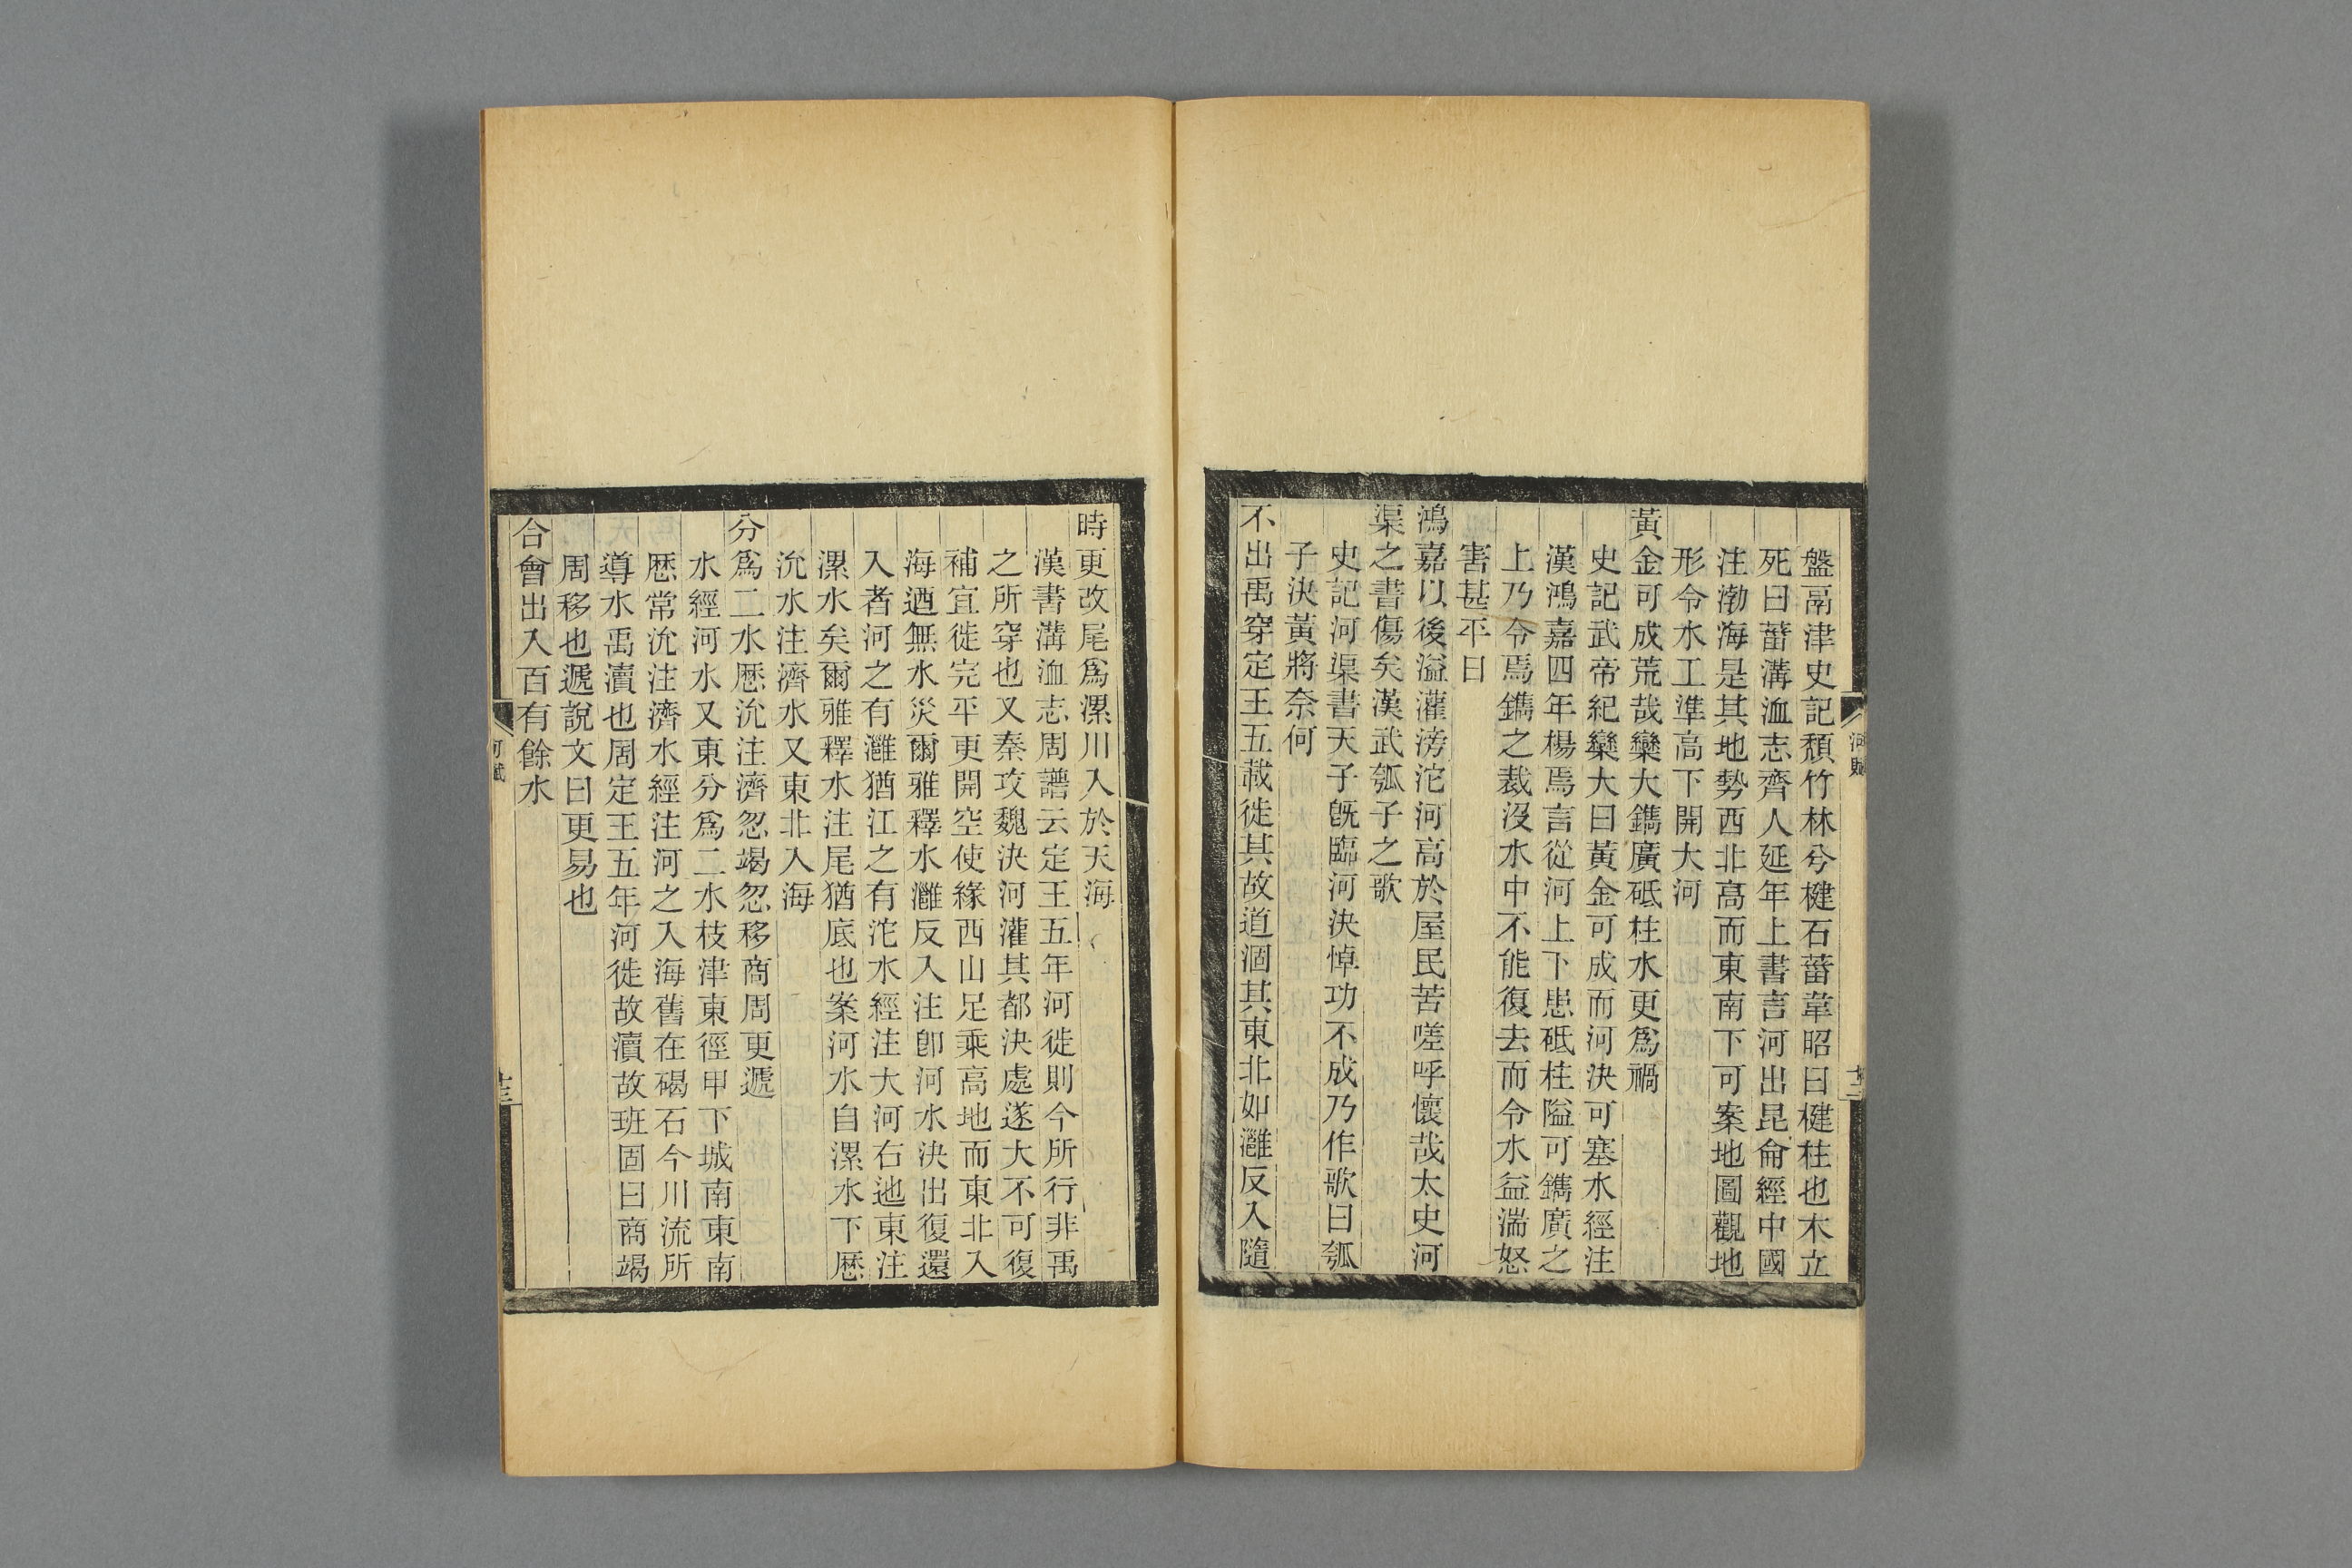 盤鬲津史記頹竹林兮楗石菑韋昭曰楗柱也木立
死曰菑溝洫志齊人延年上書言河出昆侖經中國
注渤海是其地勢西北高而東南下可案地圖觀地
形令水工準高下開大河
黃金可成荒哉欒大鐫廣砥柱水更為禍
史記武帝紀欒大曰黃金可成而河決可塞水經注
漢鴻嘉四年楊焉言從河上下患砥柱隘可鐫廣之
上乃令焉鐫之裁沒水中不能復去而令水益湍怒
害甚平日
鴻嘉以後溢灌滂沱河高於屋民苦嗟呼懷哉太史河
渠之書傷矣漢武瓠子之歌
史記河渠書天子既臨河決悼功不成乃作歌曰瓠
子決黃將奈何
不出禹穿定王五載徙其故道涸其東北如灉反入隨
河賦
十二
時更改尾為漯川入於天海
漢書溝洫志周譜云定王五年河徙則今所行非禹
之所穿也又秦攻魏決河灌其都決處遂大不可復
補宜徙完平更開空使緣西山足乘高地而東北入
海迺無水災爾雅釋水灉反入注卽河水決出復還
入者河之有灉猶江之有沱水經注大河右迆東注
漯水矣爾雅釋水注尾猶底也案河水自漯水下歷
沇水注濟水又東北入海
分為二水歷沇注濟忽竭忽移商周更遞
水經河水又東分為二水枝津東徑甲下城南東南
歷常沇注濟水經注河之入海舊在碣石今川流所
導水禹瀆也周定王五年河徙故瀆故班固曰商竭
周移也遞說文曰更易也
合會出入百有餘水
河賦
十三